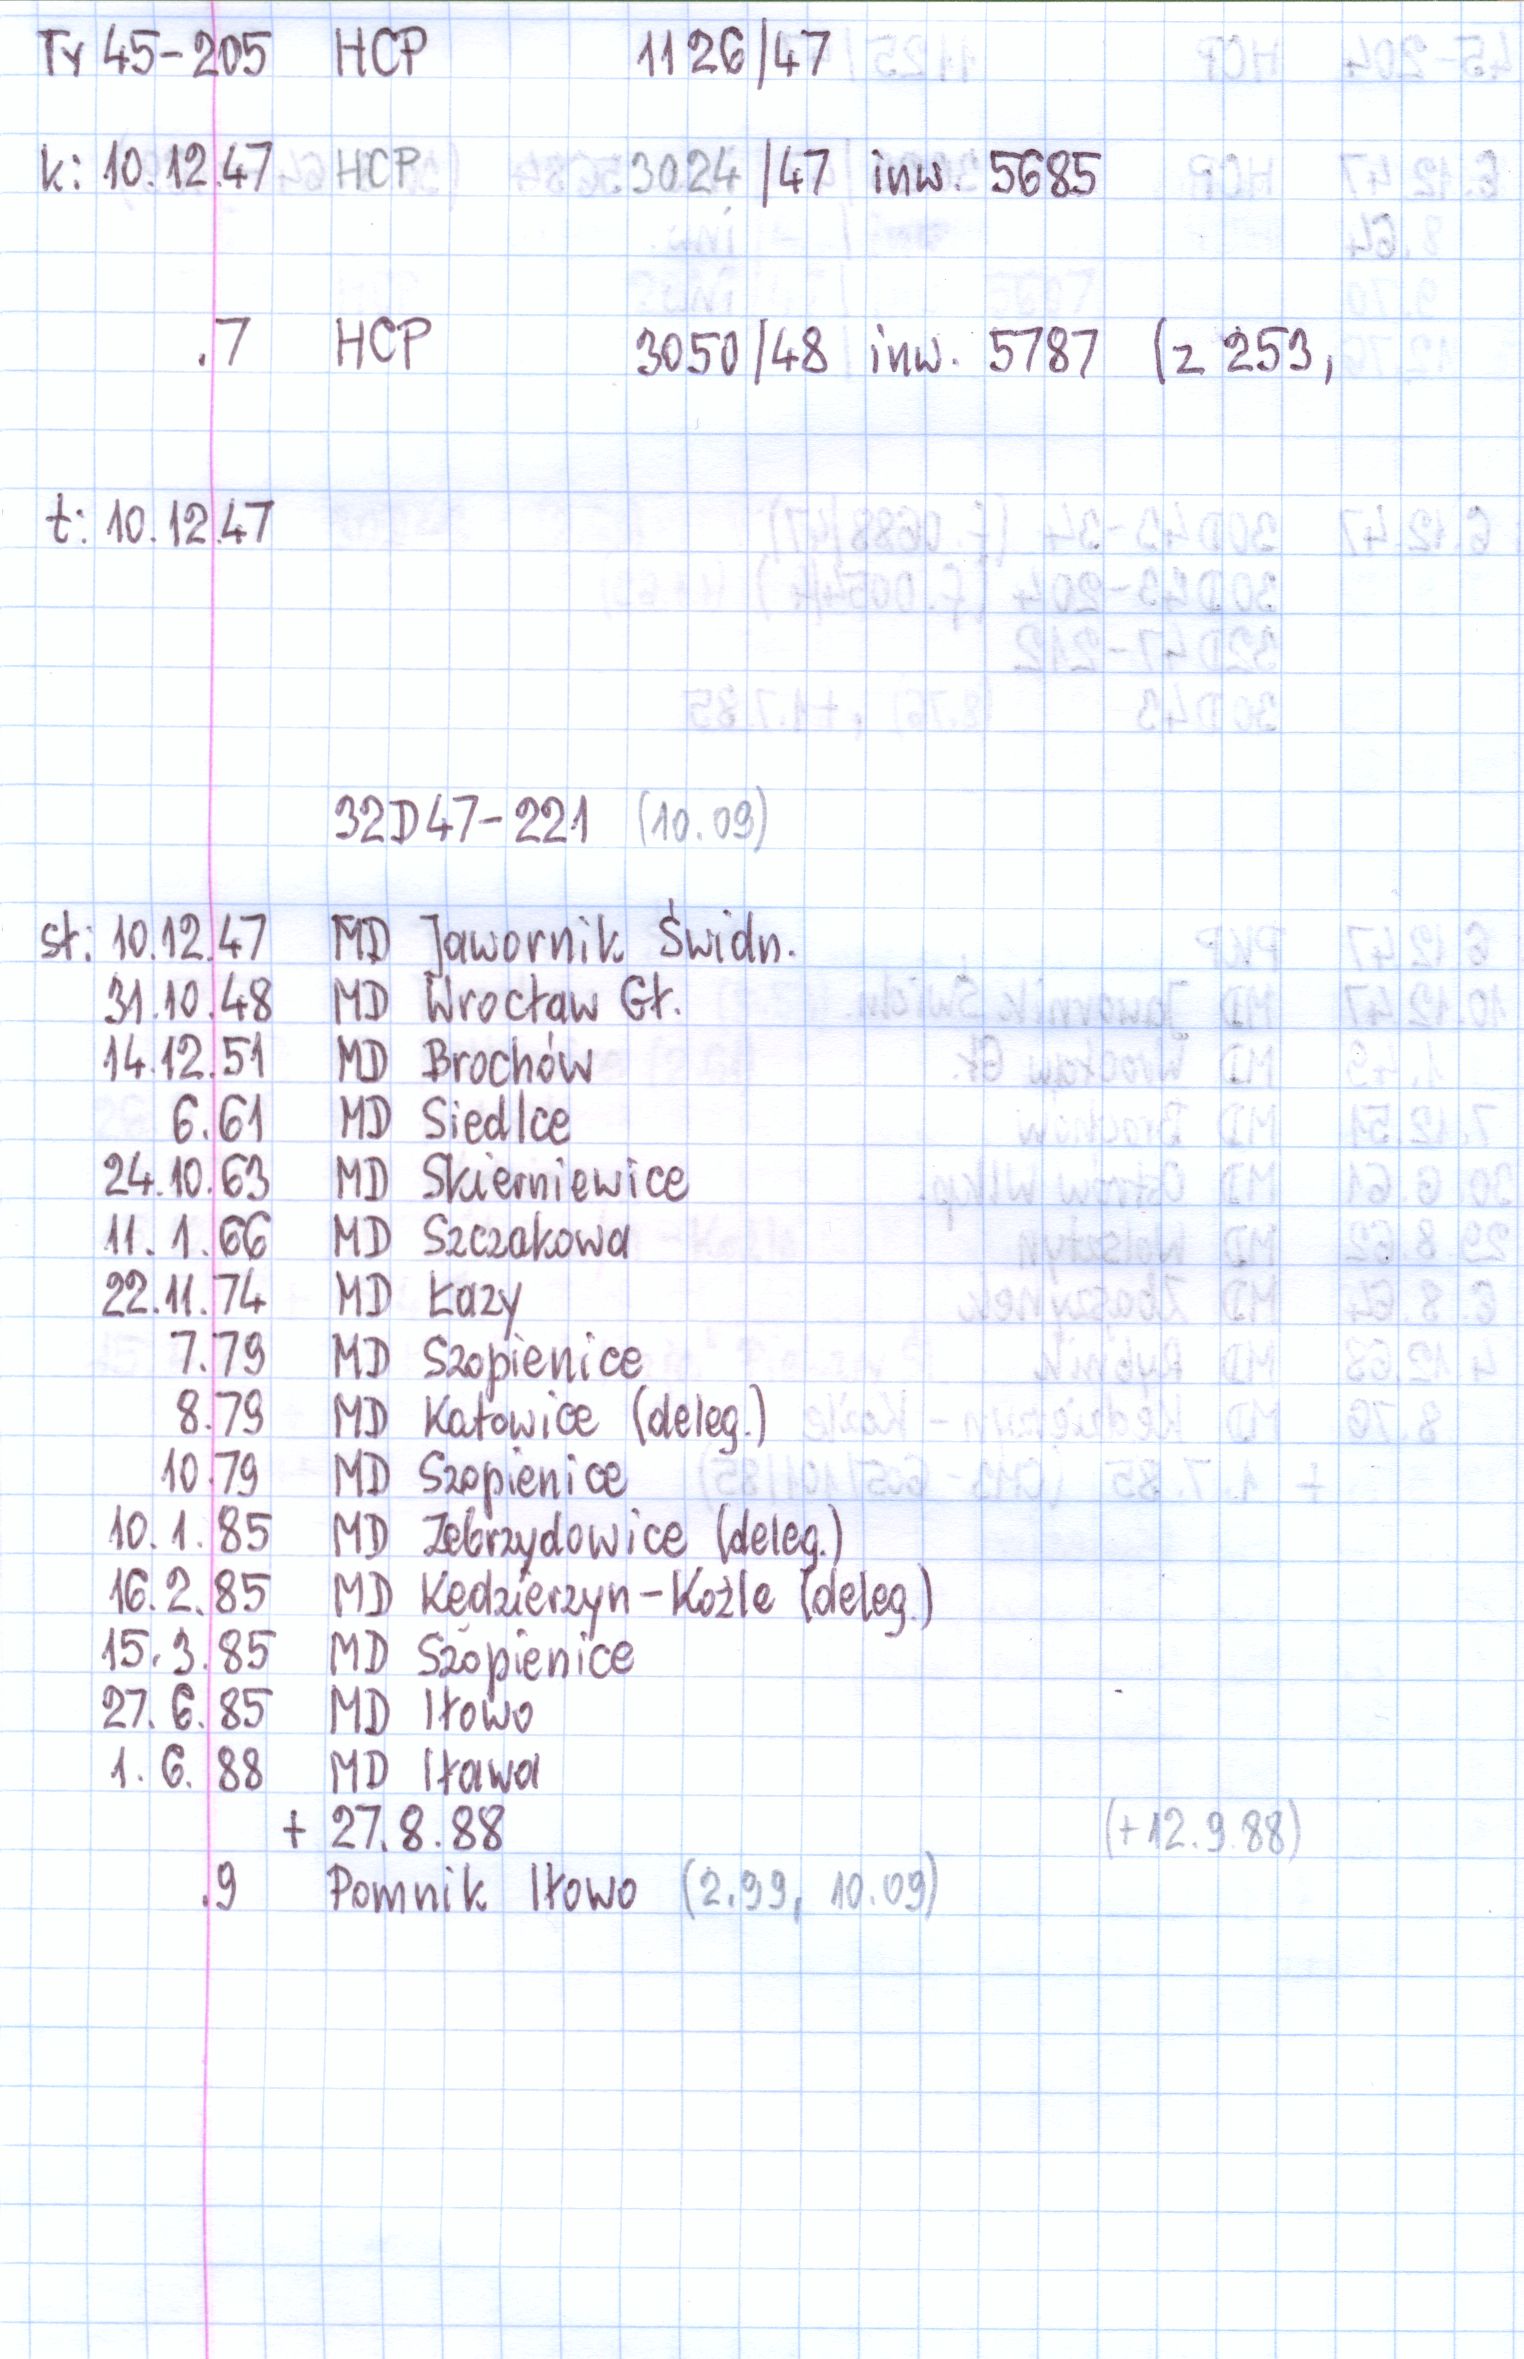 Ty 45-205 HCP 1126/47
k: 10.12.47 HCP 3024/47 inw. 5685
.7 HCP 3050/48 inw. 5787 (z 253,
t: 10.12.47
32D47-221 (10.09)
st: 10.12.47 MD Jawornik Świdn.
31.10.48 MD Wrocław Gł.
14.12.51 MD Brochów
6.61 MD Siedlce
24.10.63 MD Skierniewice
11.1.66 MD Szczakowa
22.11.74 MD Łazy
7.79 MD Szopienice
8.79 MD Katowice (deleg.)
10.79 MD Szopienice
10.1.85 MD Zebrzydowice (deleg.)
16.2.85 MD Kędzierzyn-Koźle (deleg.)
15.3.85 MD Szopienice
27.6.85 MD Iłowo
1.6.88 MD Iława
+ 27.8.88 (+12.9.88)
.9 Pomnik Iłowo (2.99, 10.09)